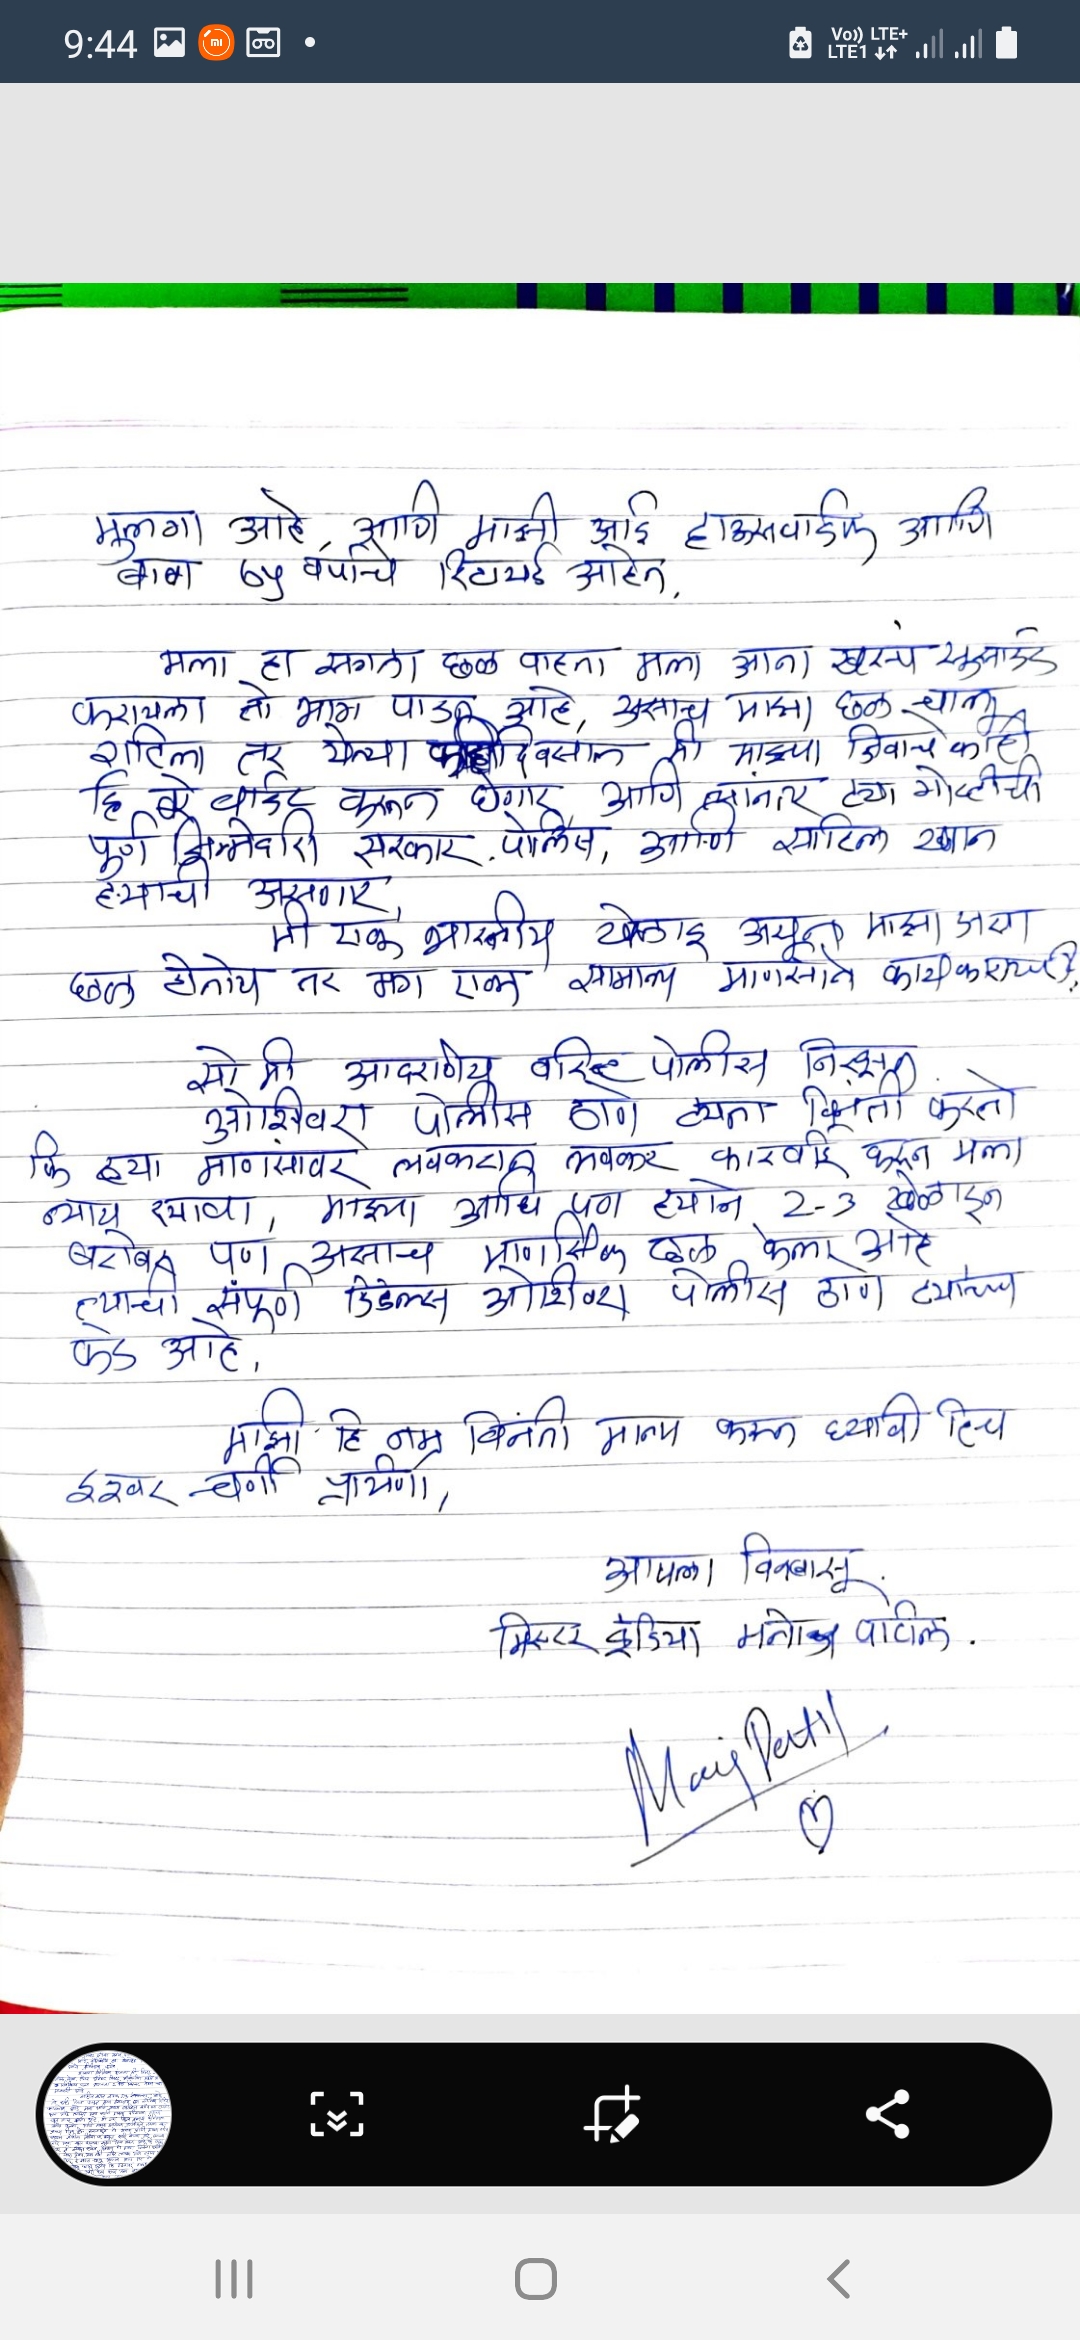 9:44
Vo)) LTE+
LTE1
मुलगा आहे, आणि माझी आई हाऊसवाईफ आणि
बाबा 65 वर्षाचे रिटायर्ड आहेत.
मला हा सगळा छळ पाहता मला आता खरंच सुसाईड
करायला तो भाग पाडत आहे, असाच माझा छळ चालू
राहिला तर येत्या काही दिवसात मी माझ्या जिवाचे काही
हि बरे वाईट करून घेणार आणि त्यानंतर ह्या गोष्टीची
पूर्ण जिम्मेदारी सरकार, पोलिस, आणि साहिल खान
ह्याची असणार,
मी एक भारतीय खेळाडू असून माझा असा
छळ होतोय तर मग एका सामान्य माणसाने काय करायचं?
सो मी आदरणीय वरिष्ठ पोलीस
ओशिवरा पोलीस ठाणे ह्यांना विनंती करतो
कि ह्या माणसावर लवकरात लवकर कारवाई करून मला
न्याय द्यावा, माझ्या आधि पण ह्याने 2-3 खेळाडून
बरोबर पण असाच माणसिक छळ केला आहे
त्याची संपूर्ण डिटेल्स ओशिवरा पोलीस ठाणे ह्यांच्या
कडे आहे,
माझी हि नम्र विनंती मान्य करून घ्यावी हिच
इश्वर चर्णी प्रार्थना,
आपला विश्वासू.
मिस्टर इंडिया मनोज पाटील.
Manoj Patil